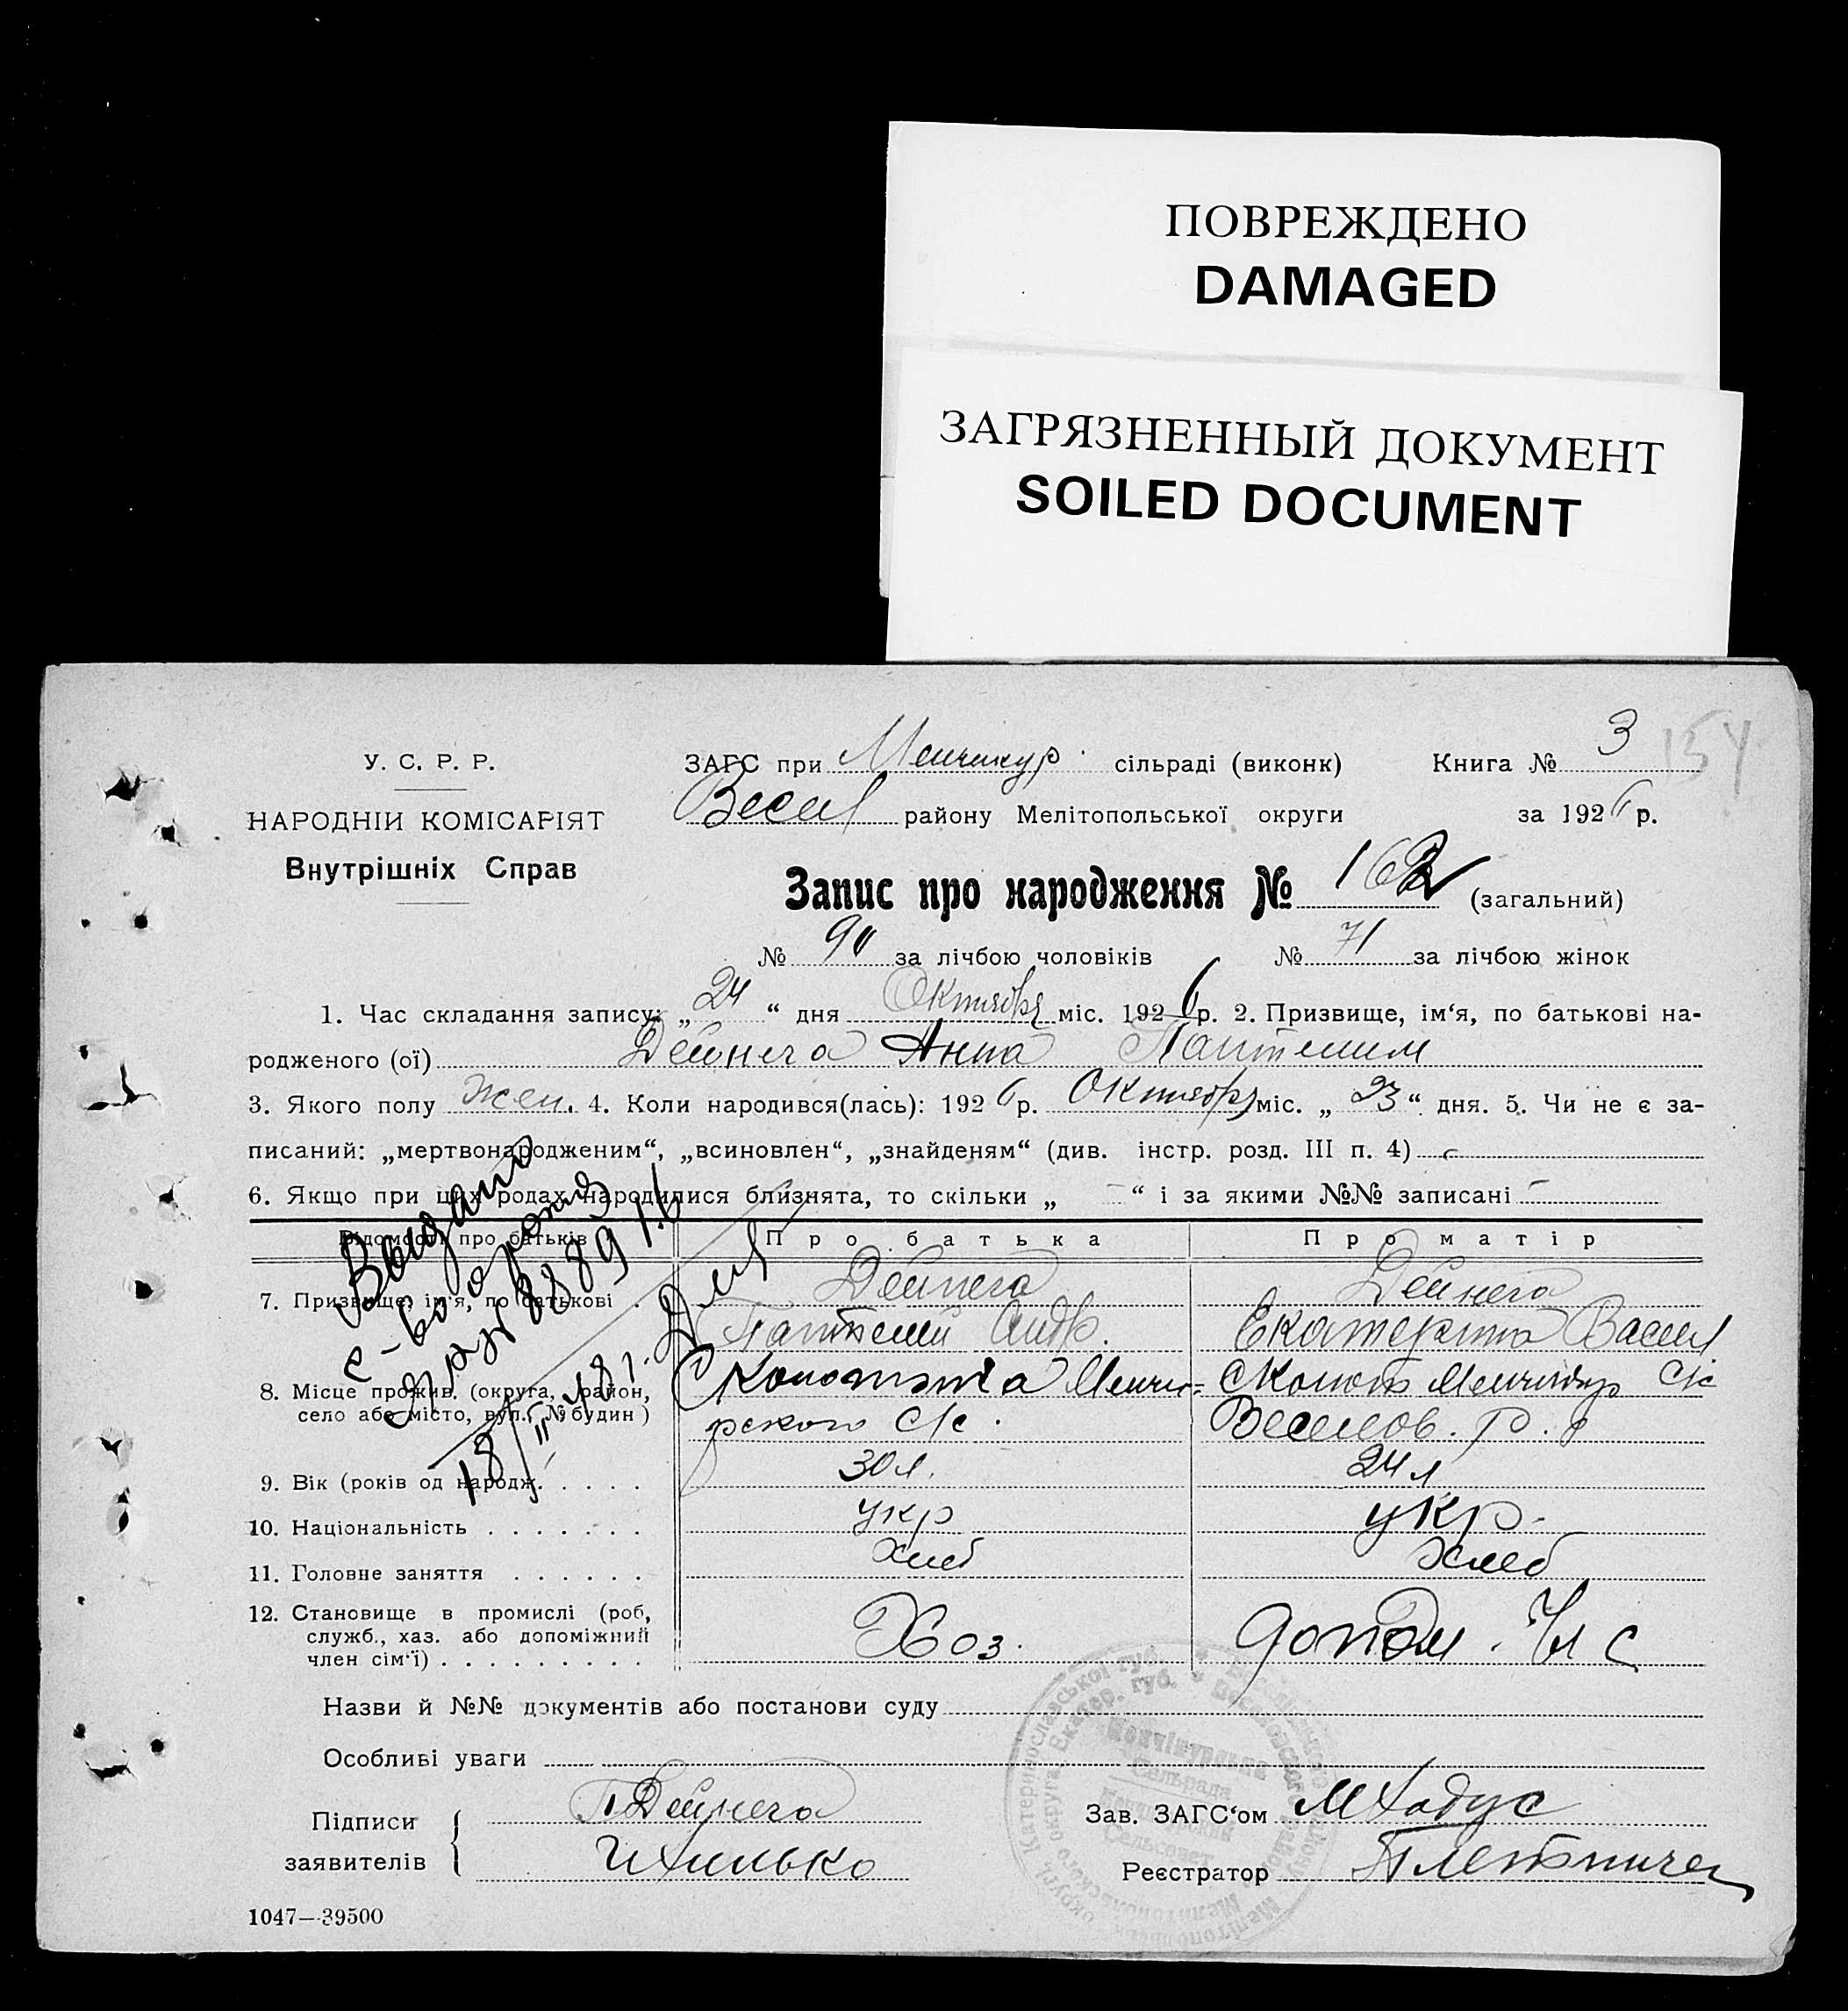 ПОВРЕЖДЕНО
DAMAGED
ЗАГРЯЗНЕННЫЙ ДОКУМЕНТ
SOILED DOCUMENT
154
У. С. Р. Р.
НАРОДНІЙ КОМІСАРІЯТ
Внутрішніх Справ
ЗАГС при Менчикур сільраді (виконк) Книга № 3
Весел району Мелітопольської округи за 1926 р.
Запис про народження № 162 (загальний)
№ 90 за лічбою чоловіків № 71 за лічбою жінок
1. Час складання запису: „24“ дня Октября міс. 1926 р. 2. Призвище, ім'я, по батькові на-
родженого (ої) Дейнега Анна Пантелим
3. Якого полу жен. 4. Коли народився(лась): 1926 р. Октября міс. „23“ дня. 5. Чи не є за-
писаний: „мертвонародженим“, „всиновлен“, „знайденям“ (див. інстр. розд. III п. 4)
6. Якщо при цих родах народилися близнята, то скільки „ – “ і за якими №№ записані –
Відомости про батьків Про батька Про матір
7. Призвище, ім'я, по батькові . Дейнега Дейнега
Пантелей Андр. Екатерина Васил
8. Місце прожив. (округа, район, село або місто, вул., № будин)
рского С/с. Веселов. р.
9. Вік (років од народж. . . . . . 30 л. 24 л
10. Національність . . . . . . . укр укр.
11. Головне заняття . . . . . . Хлеб Хлеб
12. Становище в промислі (роб, служб., хаз. або допоміжний член сім'ї) . . . . . . . . . Хоз. допом. Чл С
Выдано
с-во о рожд
18/II 48 г.
Назви й №№ документів або постанови суду
Особливі уваги
Підписи заявителів { П Дейнега
Зав. ЗАГС'ом М Хадус
Реєстратор
1047—39500